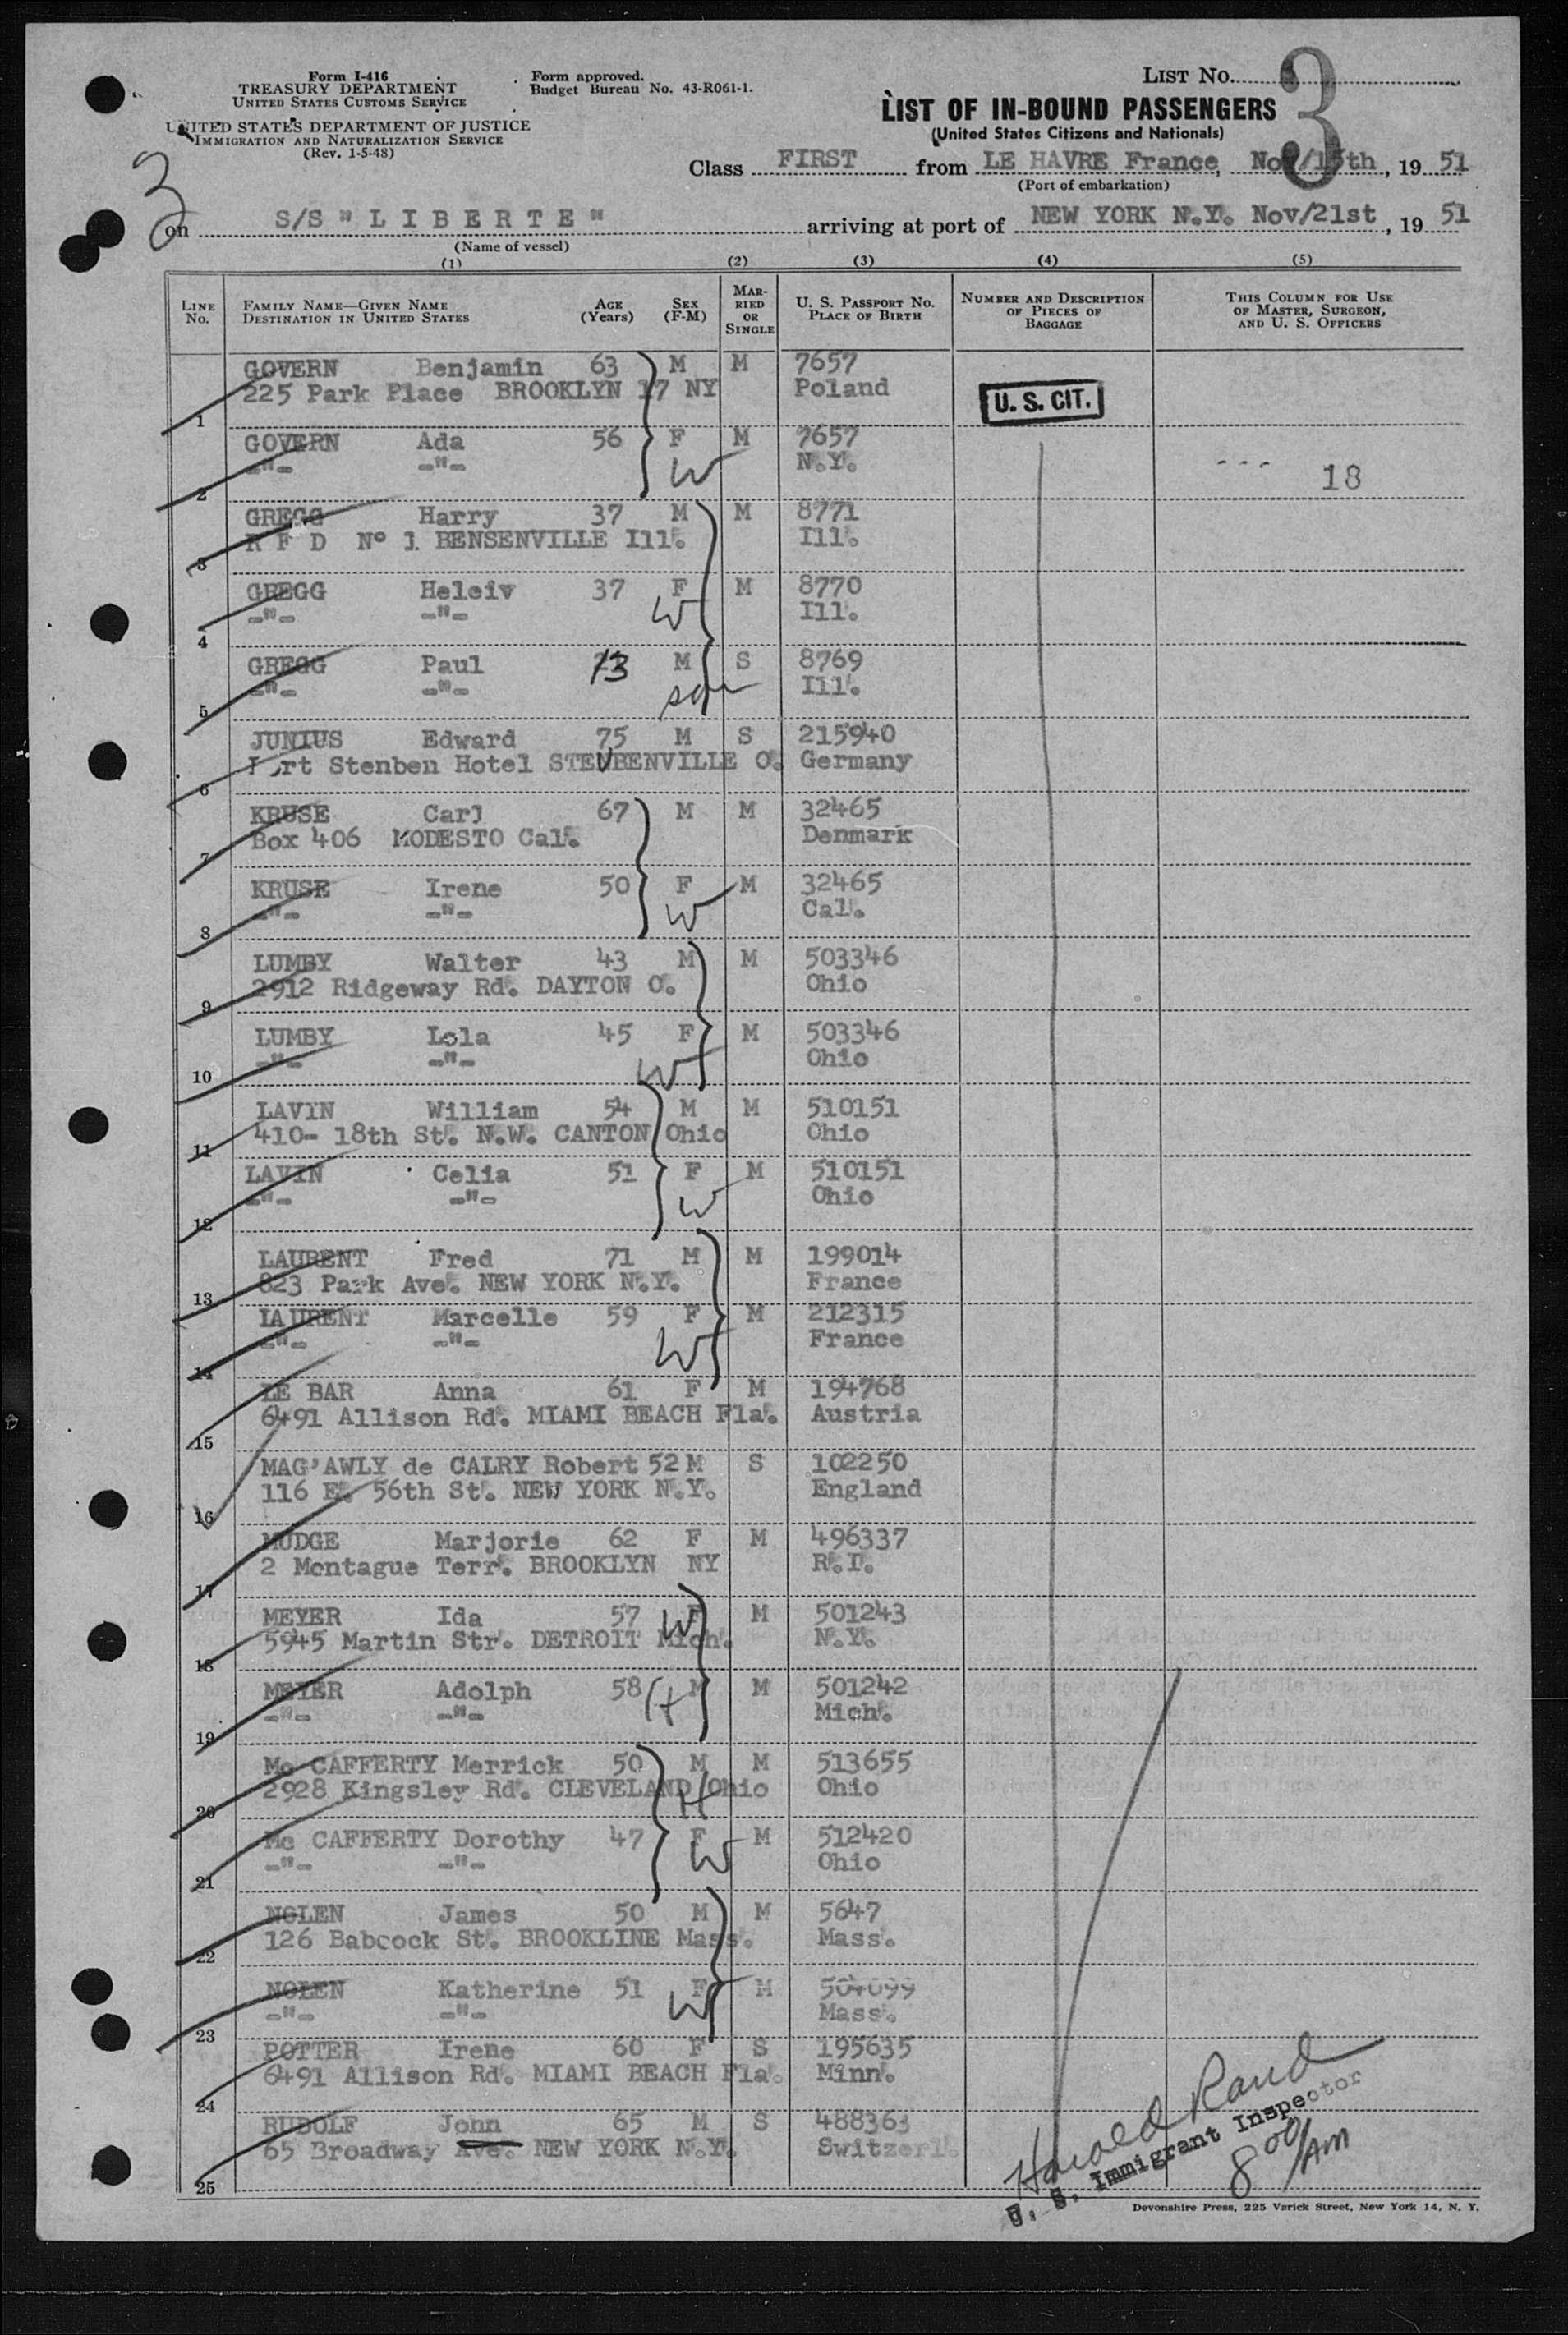 Form I-416
TREASURY DEPARTMENT
UNITED STATES CUSTOMS SERVICE
UNITED STATES DEPARTMENT OF JUSTICE
IMMIGRATION AND NATURALIZATION SERVICE
(Rev. 1-5-48)
Form approved.
Budget Bureau No. 43-R061-1.
LIST No. 3
LIST OF IN-BOUND PASSENGERS
(United States Citizens and Nationals)
3
Class FIRST from LE HAVRE France, 1951
(Port of embarkation)
on S/S "LIBERTE" arriving at port of NEW YORK N.Y. Nov/21st, 1951
(Name of vessel)
(1) (2) (3) (4) (5)
LINE No. FAMILY NAME—GIVEN NAME DESTINATION IN UNITED STATES AGE (Years) SEX (F-M) MARRIED OR SINGLE U. S. PASSPORT No. PLACE OF BIRTH NUMBER AND DESCRIPTION OF PIECES OF BAGGAGE THIS COLUMN FOR USE OF MASTER, SURGEON, AND U. S. OFFICERS
GOVERN Benjamin 63 M M 7657
1 225 Park Place BROOKLYN 17 NY Poland U. S. CIT.
GOVERN Ada 56 F M 7657
2 -"- -"- W N.Y. --- 18
GREGG Harry 37 M M 8771
3 R F D Nº 1 BENSENVILLE Ill. Ill.
GREGG Heleiv 37 F M 8770
4 -"- -"- W Ill.
GREGG Paul 13 M S 8769
5 -"- -"- son Ill.
JUNIUS Edward 75 M S 215940
6 Stenben Hotel STEUBENVILLE O. Germany
KRUSE Carl 67 M M 32465
7 Box 406 MODESTO Cal. Denmark
KRUSE Irene 50 F M 32465
8 -"- -"- W Cal.
LUMBY Walter 43 M M 503346
9 2912 Ridgeway Rd. DAYTON O. Ohio
LUMBY Lola 45 F M 503346
10 -"- -"- W Ohio
LAVIN William 54 M M 510151
11 410- 18th St. N.W. CANTON Ohio Ohio
LAVIN Celia 51 F M 510151
12 -"- -"- W Ohio
LAURENT Fred 71 M M 199014
13 823 Park Ave. NEW YORK N.Y. France
LAURENT Marcelle 59 F M 212315
14 -"- -"- W France
LE BAR Anna 61 F M 194768
15 6491 Allison Rd. MIAMI BEACH Fla. Austria
MAG'AWLY de CALRY Robert 52 M S 102250
16 116 E. 56th St. NEW YORK N.Y. England
MUDGE Marjorie 62 F M 496337
17 2 Montague Terr. BROOKLYN NY R.I.
MEYER Ida 57 W F M 501243
18 5945 Martin Str. DETROIT Mich. N.Y.
MEYER Adolph 58 H M M 501242
19 -"- -"- Mich.
Mc CAFFERTY Merrick 50 M M 513655
20 2928 Kingsley Rd. CLEVELAND Ohio H Ohio
Mc CAFFERTY Dorothy 47 F M 512420
21 -"- -"- W Ohio
NOLEN James 50 M M 5647
22 126 Babcock St. BROOKLINE Mass. Mass.
NOLEN Katherine 51 F M 504099
23 -"- -"- W Mass.
POTTER Irene 60 F S 195635
24 6491 Allison Rd. MIAMI BEACH Fla. Minn.
RUDOLF John 65 M S 488363
25 65 Broadway Ave. NEW YORK N.Y. Switzerl.
Harold Rand
U. S. Immigrant Inspector
8 00/AM
Devonshire Press, 225 Varick Street, New York 14, N. Y.